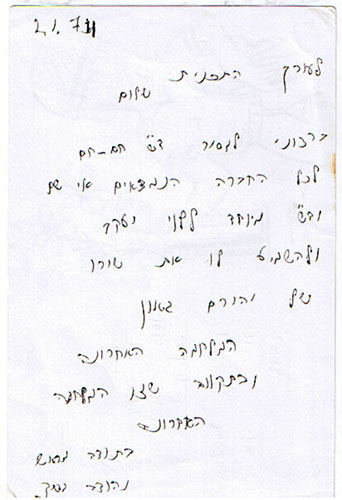 21.1.74
לעורך התכנית
שלום
ברצוני למסור ד"ש חם-חם
לכל החברה הנמצאים אי שם
וד"ש מיוחד ללוי יעקב
ולהשמיע לו את שירו
של יהורם גאון
המלחמה האחרונה
ובתקווה שזו המלחמה
האחרונה
בתודה מראש
יהודה